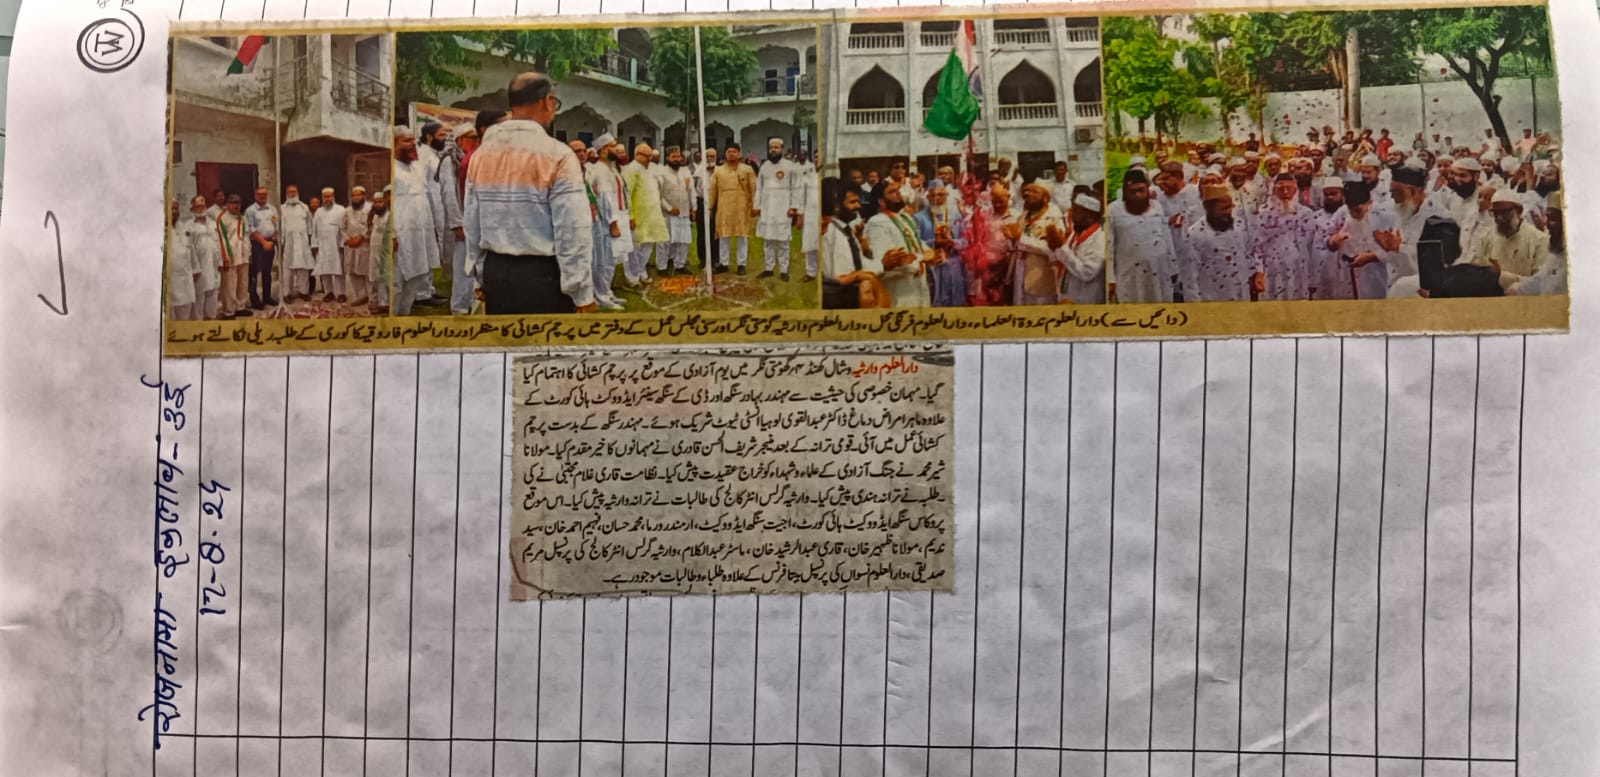 (دائیں سے) دارالعلوم ندوۃ العلماء، دارالعلوم فرنگی محل، دارالعلوم وارثیہ گومتی نگر اور سنی مجلس عمل کے دفتر میں پرچم کشائی کا منظر اور دارالعلوم فاروقیہ کاکوری کے طلبہ ریلی نکالتے ہوئے
دارالعلوم وارثیہ وشال کھنڈ ۴؍گومتی نگر میں یوم آزادی کے موقع پر پرچم کشائی کا اہتمام کیا
گیا۔ مہمان خصوصی کی حیثیت سے مہندر بہادر سنگھ اور ڈی کے سنگھ سینئر ایڈووکیٹ ہائی کورٹ کے
علاوہ ماہر امراض دماغ ڈاکٹر عبدالقوی لوہیا انسٹی ٹیوٹ شریک ہوئے۔ مہندر سنگھ کے بدست پرچم
کشائی عمل میں آئی۔ قومی ترانہ کے بعد منیجر شریف الحسن قادری نے مہمانوں کا خیر مقدم کیا۔ مولانا
شیر محمد نے جنگ آزادی کے علماء و شہداء کو خراج عقیدت پیش کیا۔ نظامت قاری غلام مجتبیٰ نے کی
۔ طلبہ نے ترانہ ہندی پیش کیا۔ وارثیہ گرلس انٹر کالج کی طالبات نے ترانہ وارثیہ پیش کیا۔ اس موقع
پر وکاس سنگھ ایڈووکیٹ ہائی کورٹ، اجیت سنگھ ایڈووکیٹ، ارمندر ورما، محمد حسان، فہیم احمد خان، سید
ندیم، مولانا ظہیر خان، قاری عبدالرشید خان، ماسٹر عبدالکلام، وارثیہ گرلس انٹر کالج کی پرنسپل مریم
صدیقی، دارالعلوم نسواں کی پرنسپل بینا فرنس کے علاوہ طلباء و طالبات موجود رہے۔
रोजनामा इन्कलाब - उर्दू
17-8-24
W